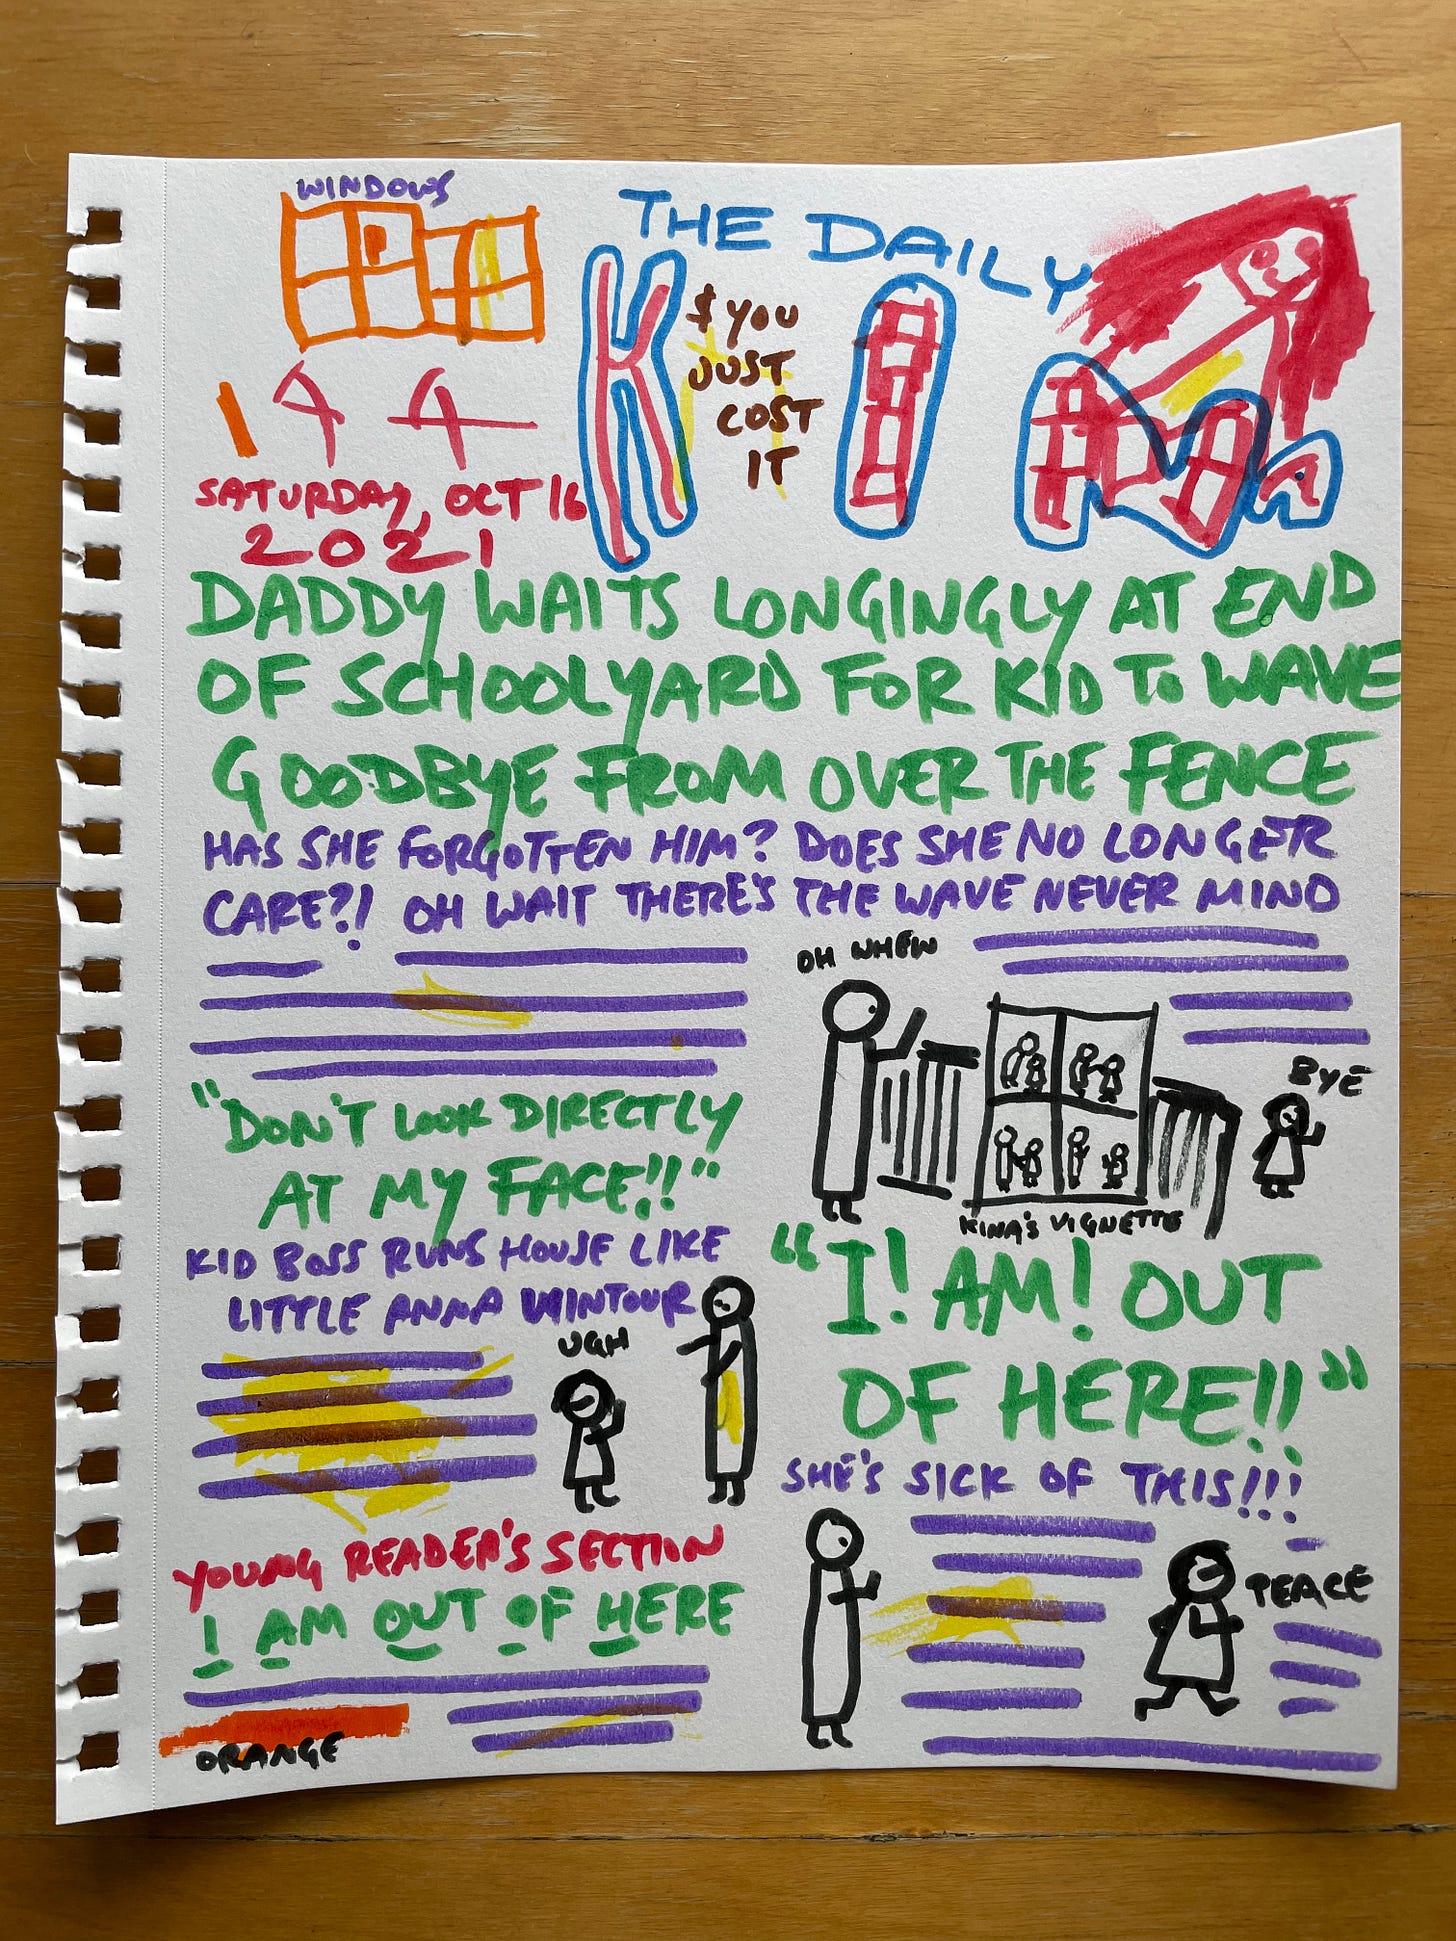 WINDOWS
THE DAILY
KINA
$ YOU
JUST
COST
IT
144
SATURDAY, OCT 16
2021
DADDY WAITS LONGINGLY AT END
OF SCHOOLYARD FOR KID TO WAVE
GOODBYE FROM OVER THE FENCE
HAS SHE FORGOTTEN HIM? DOES SHE NO LONGER
CARE?! OH WAIT THERE'S THE WAVE NEVER MIND
OH WHEW
BYE
KINA'S VIGNETTE
"DON'T LOOK DIRECTLY
AT MY FACE!!"
KID BOSS RUNS HOUSE LIKE
LITTLE ANNA WINTOUR
UGH
"I! AM! OUT
OF HERE!!"
SHE'S SICK OF THIS!!!
PEACE
YOUNG READER'S SECTION
I AM OUT OF HERE
ORANGE